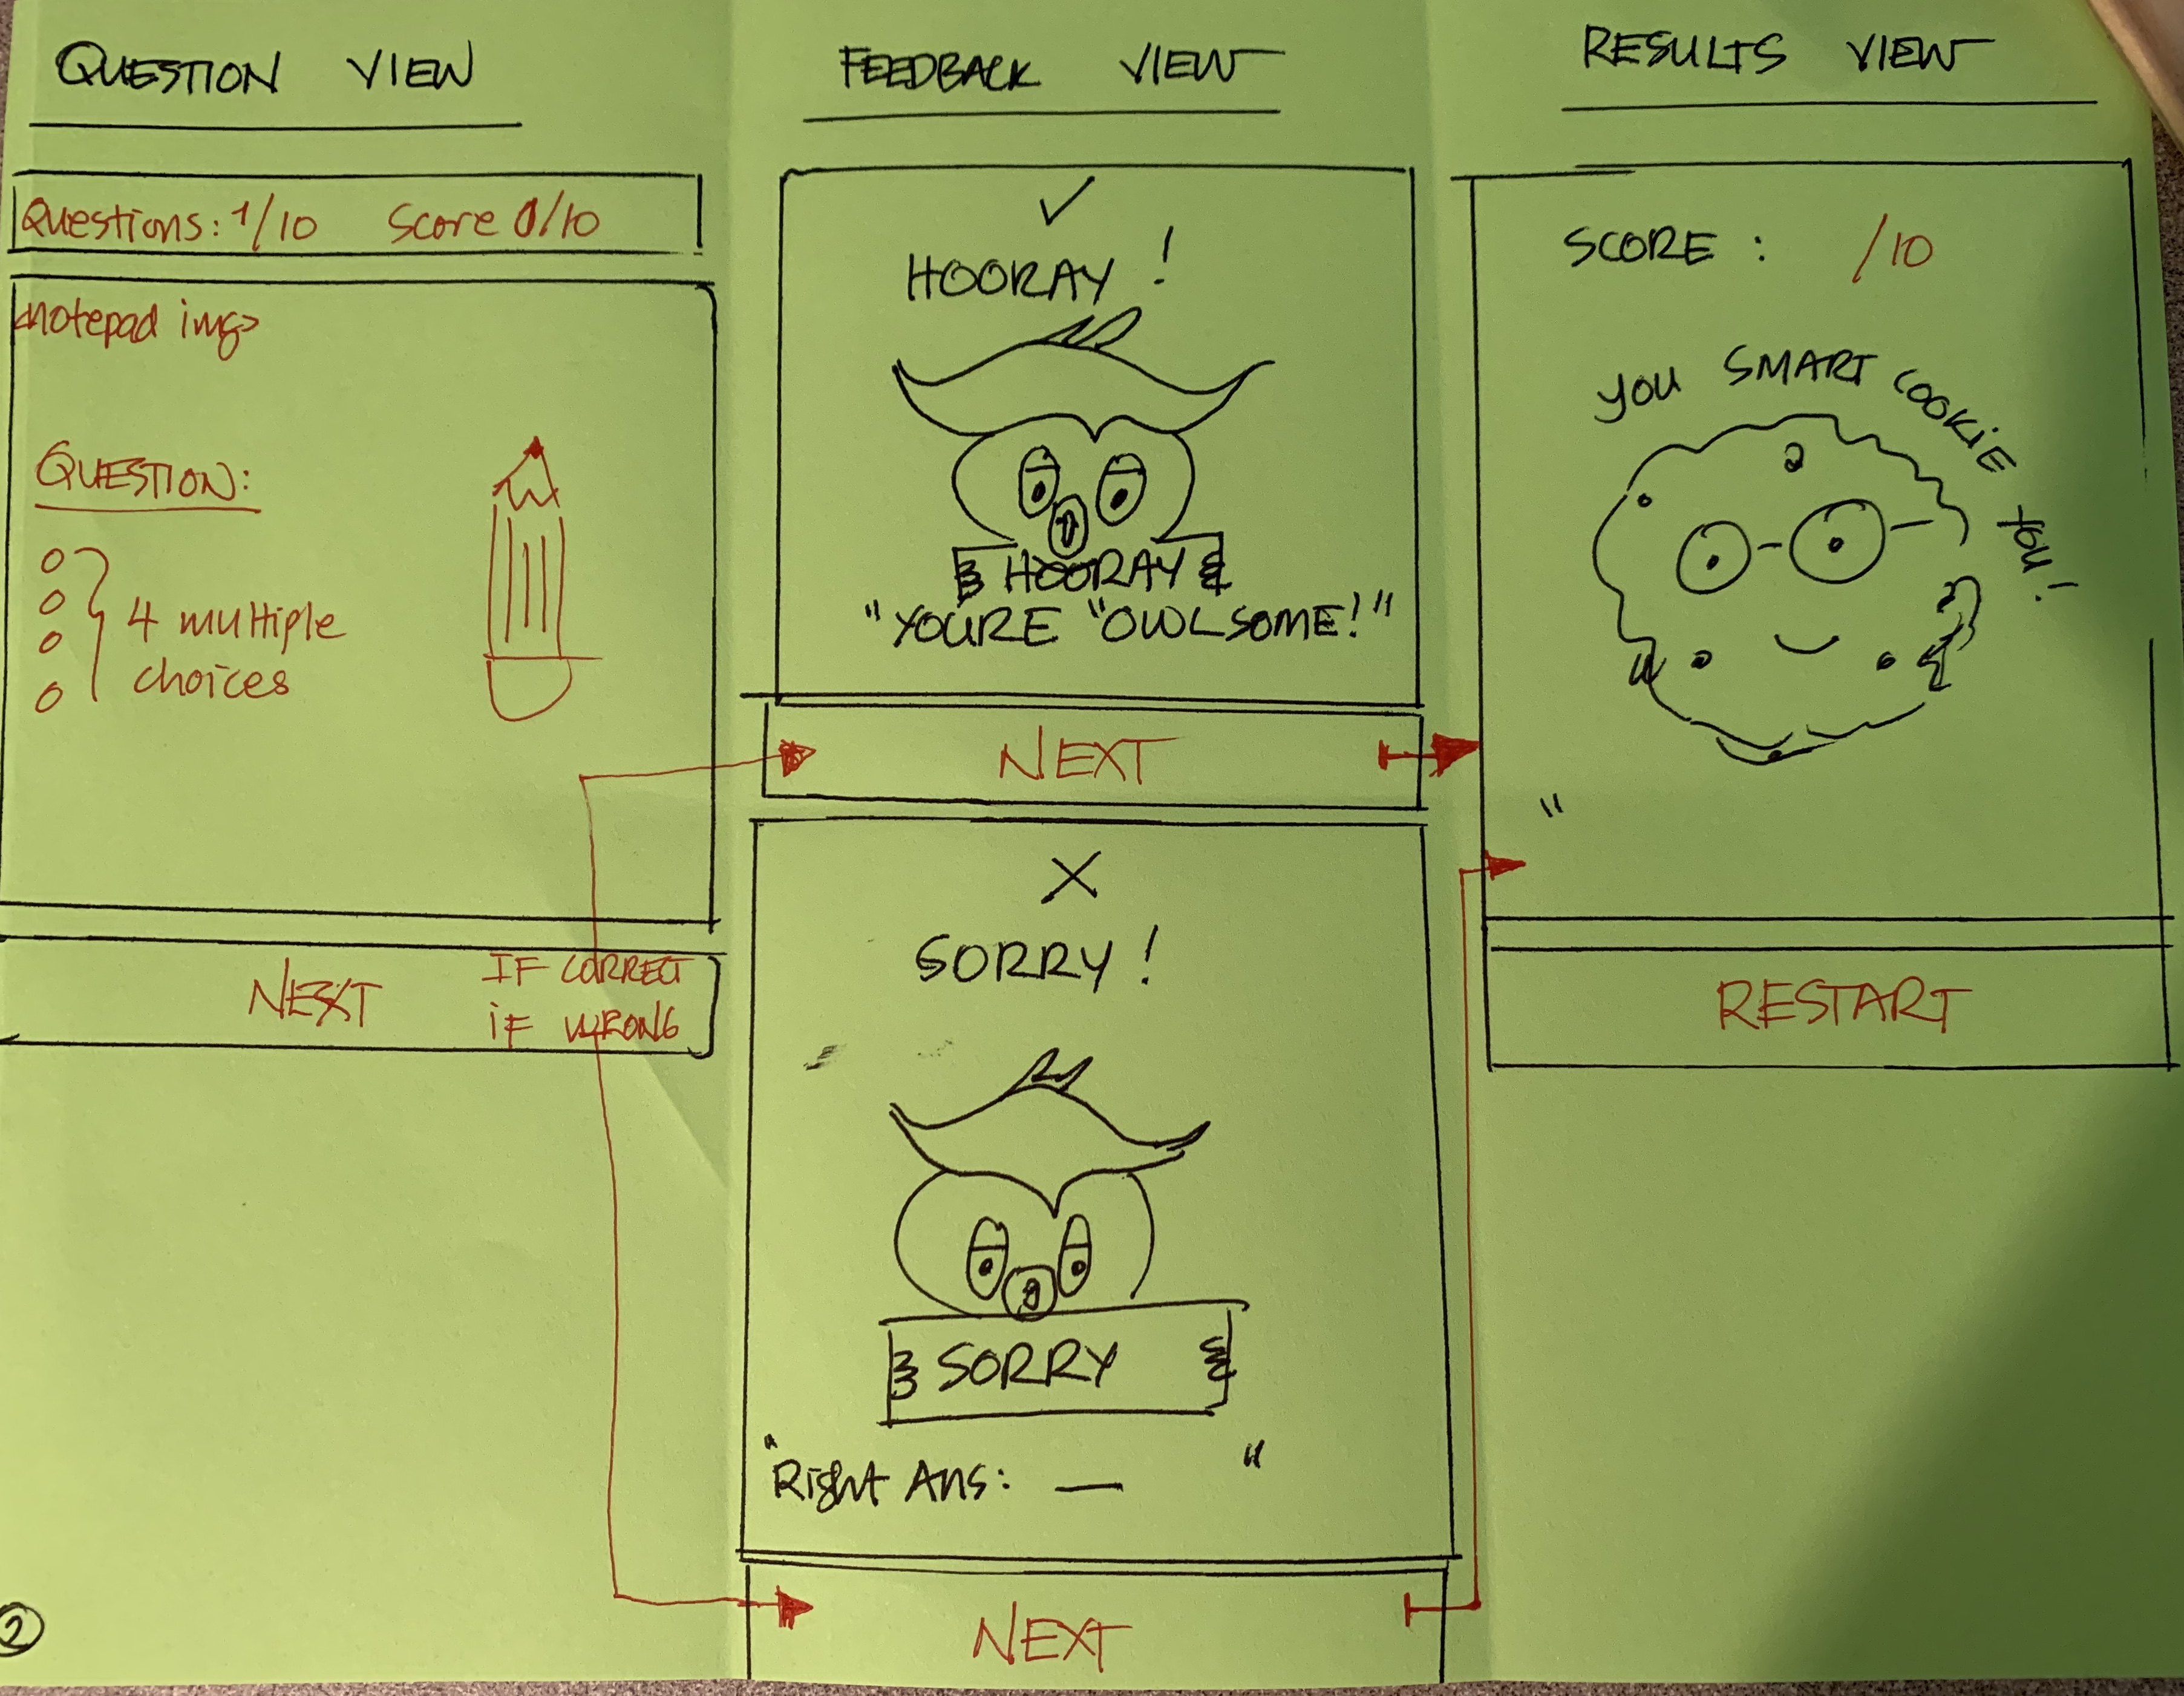 QUESTION VIEW
Questions: 1/10 Score 0/10
<notepad img>
QUESTION:
4 multiple
choices
NEXT
IF CORRECT
IF WRONG
FEEDBACK VIEW
✓
HOORAY !
HOORAY
"YOURE "OWLSOME!"
NEXT
X
SORRY !
SORRY
"Right Ans: — "
NEXT
RESULTS VIEW
SCORE : /10
YOU SMART COOKIE YOU!
"
RESTART
2